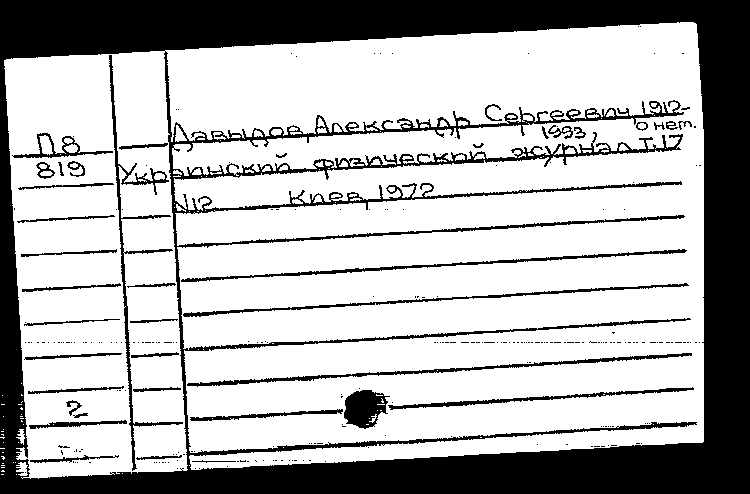 П8
819
Давыдов, Александр Сергеевич, 1912-
1993, о нем.
Украинский физический журнал Т.17
N12 Киев, 1972
2